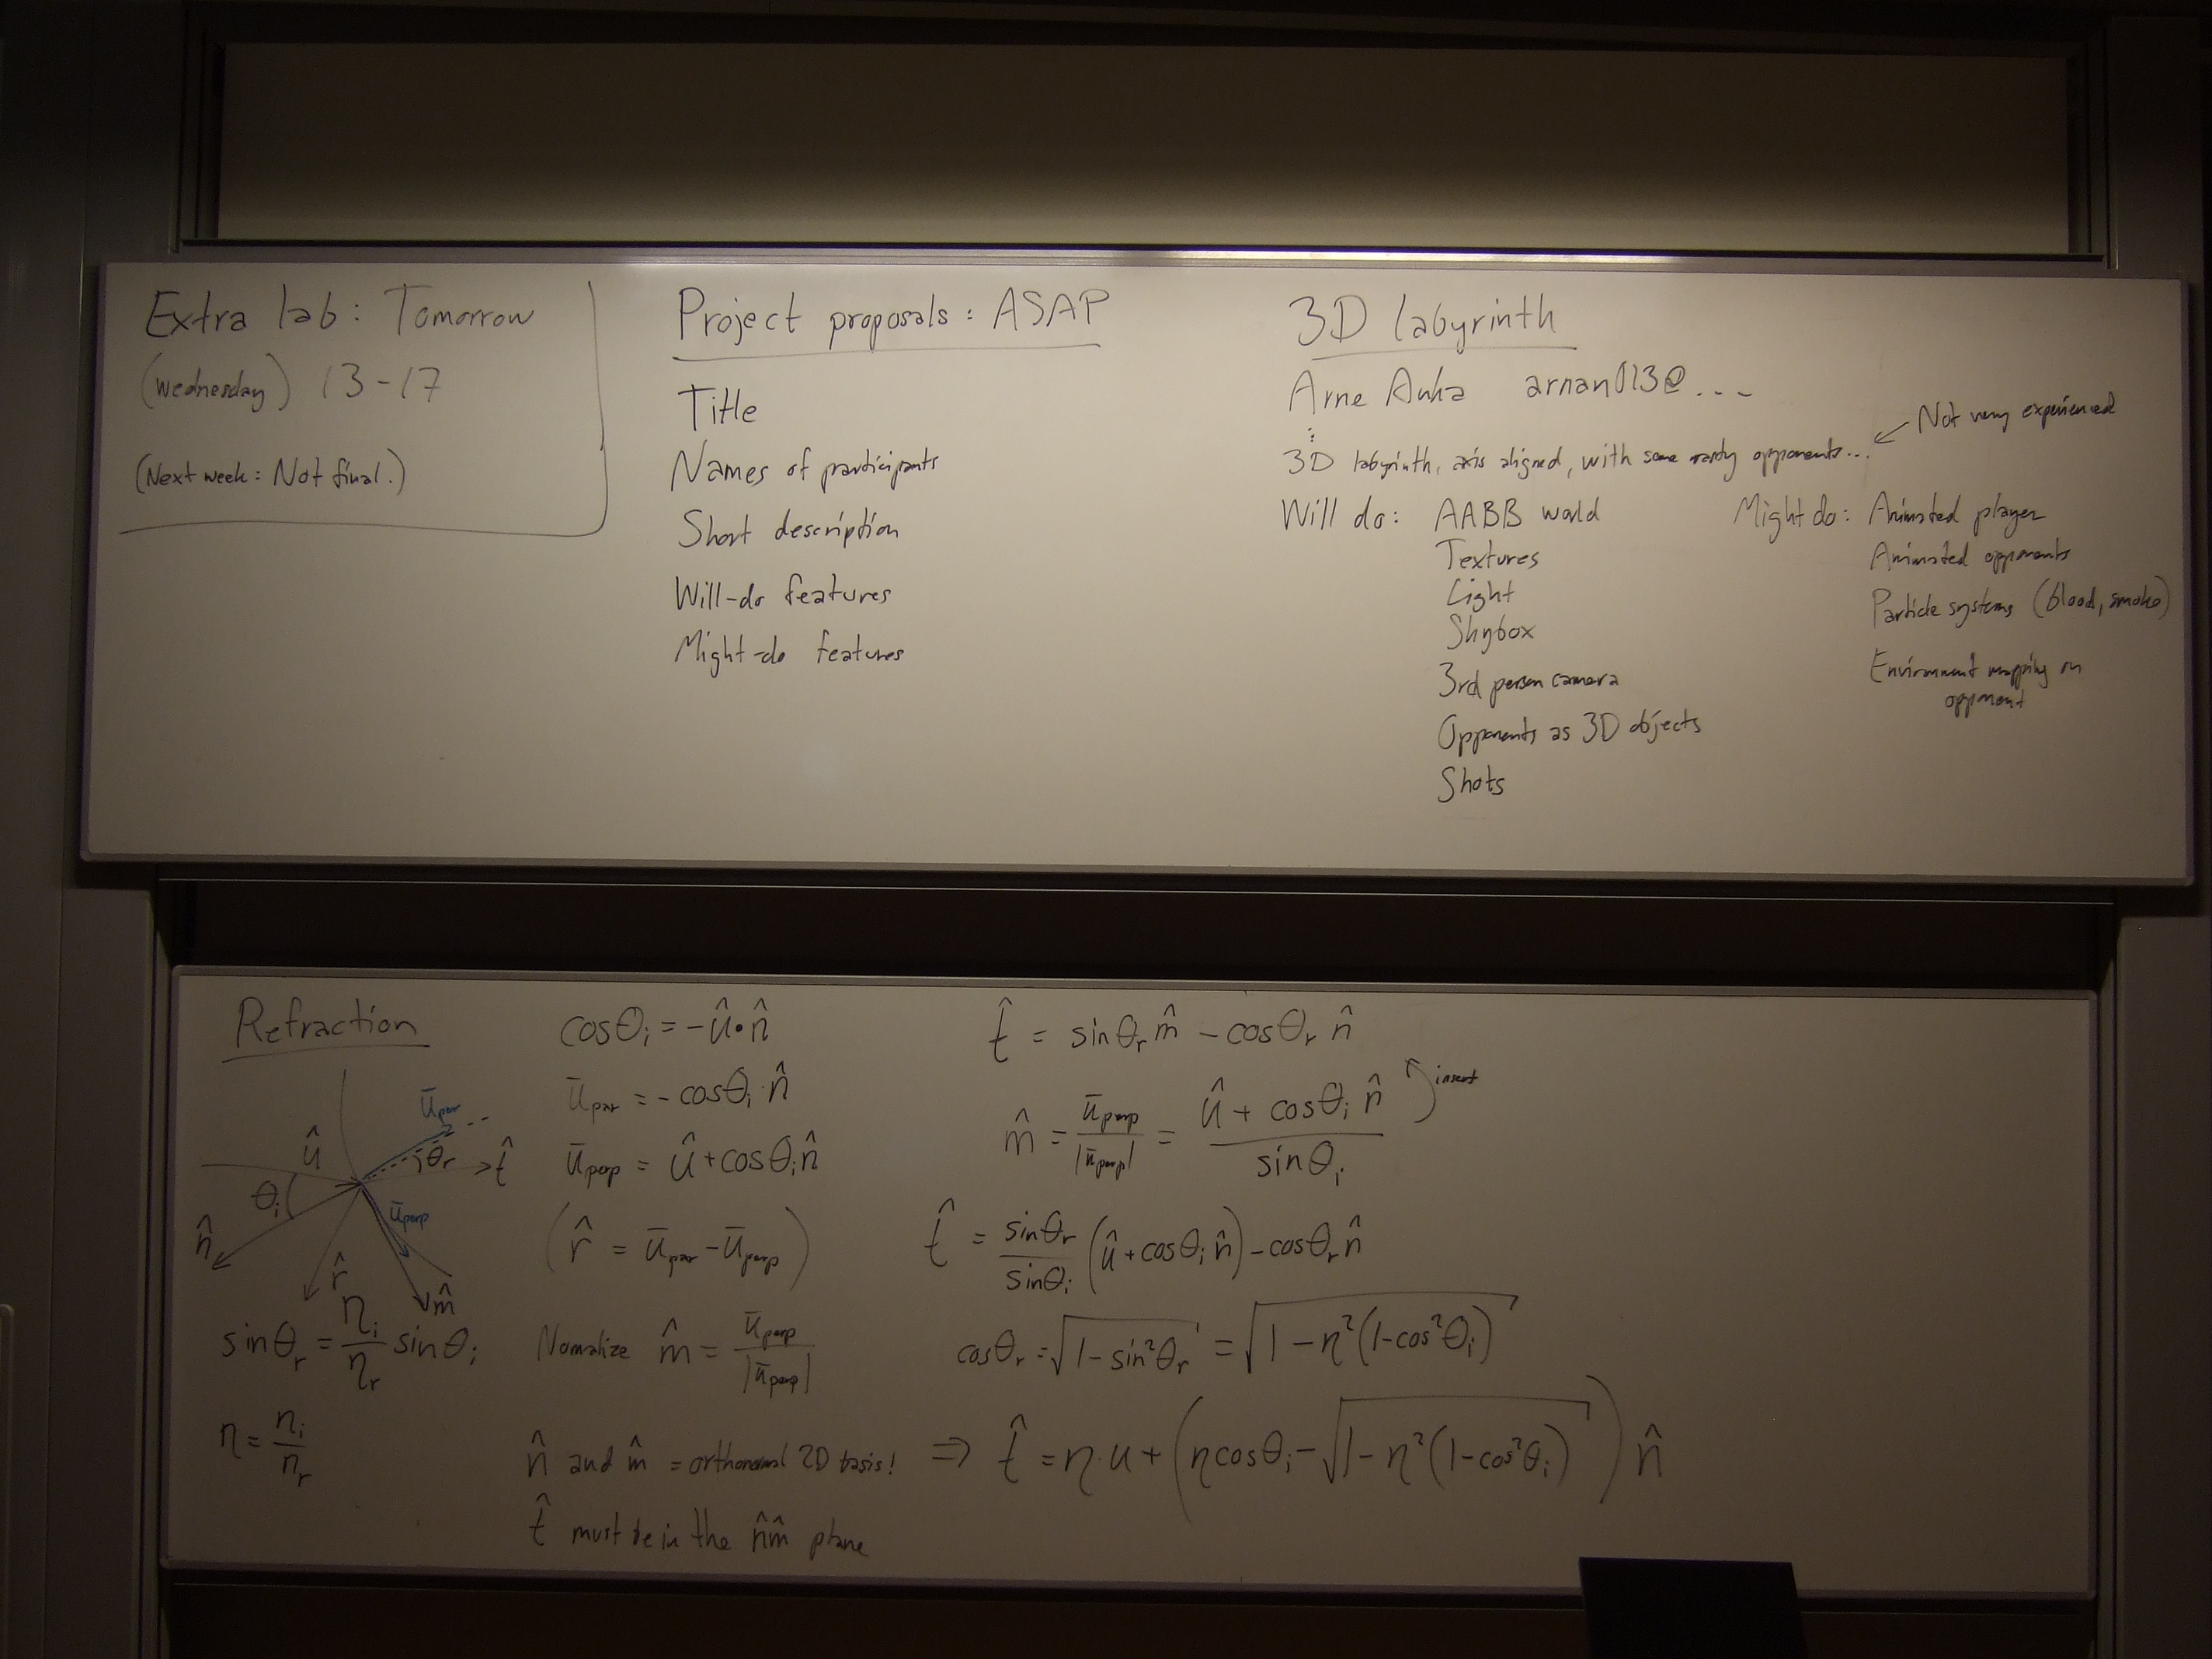 Extra lab: Tomorrow
(Wednesday) 13-17
(Next week: Not final.)
Project proposals: ASAP
Title
Names of participants
Short description
Will-do features
Might-do features
3D labyrinth
Arne Anka arnan013@...
⋮
3D labyrinth, axis aligned, with some nasty opponents...
← Not very experienced
Will do: AABB world
Textures
Light
Skybox
3rd person camera
Opponents as 3D objects
Shots
Might do: Animated player
Animated opponents
Particle systems (blood, smoke)
Environment mapping on
opponent
Refraction
û
ū_par
θ_r
t̂
θ_i
ū_perp
n̂
r̂
m̂
sinθ_r = η_i/η_r sinθ_i
η = η_i/η_r
cosθ_i = -û•n̂
ū_par = -cosθ_i·n̂
ū_perp = û+cosθ_i n̂
(r̂ = ū_par - ū_perp)
Nomalize m̂ = ū_perp/|ū_perp|
n̂ and m̂ = orthonormal 2D basis!
t̂ must be in the n̂m̂ plane
t̂ = sinθ_r m̂ - cosθ_r n̂
insert
m̂ = ū_perp/|ū_perp| = (û + cosθ_i n̂)/sinθ_i
t̂ = sinθ_r/sinθ_i (û+cosθ_i n̂) - cosθ_r n̂
cosθ_r = √(1-sin²θ_r) = √(1-η²(1-cos²θ_i))
⇒ t̂ = η·u + (ηcosθ_i - √(1-η²(1-cos²θ_i))) n̂